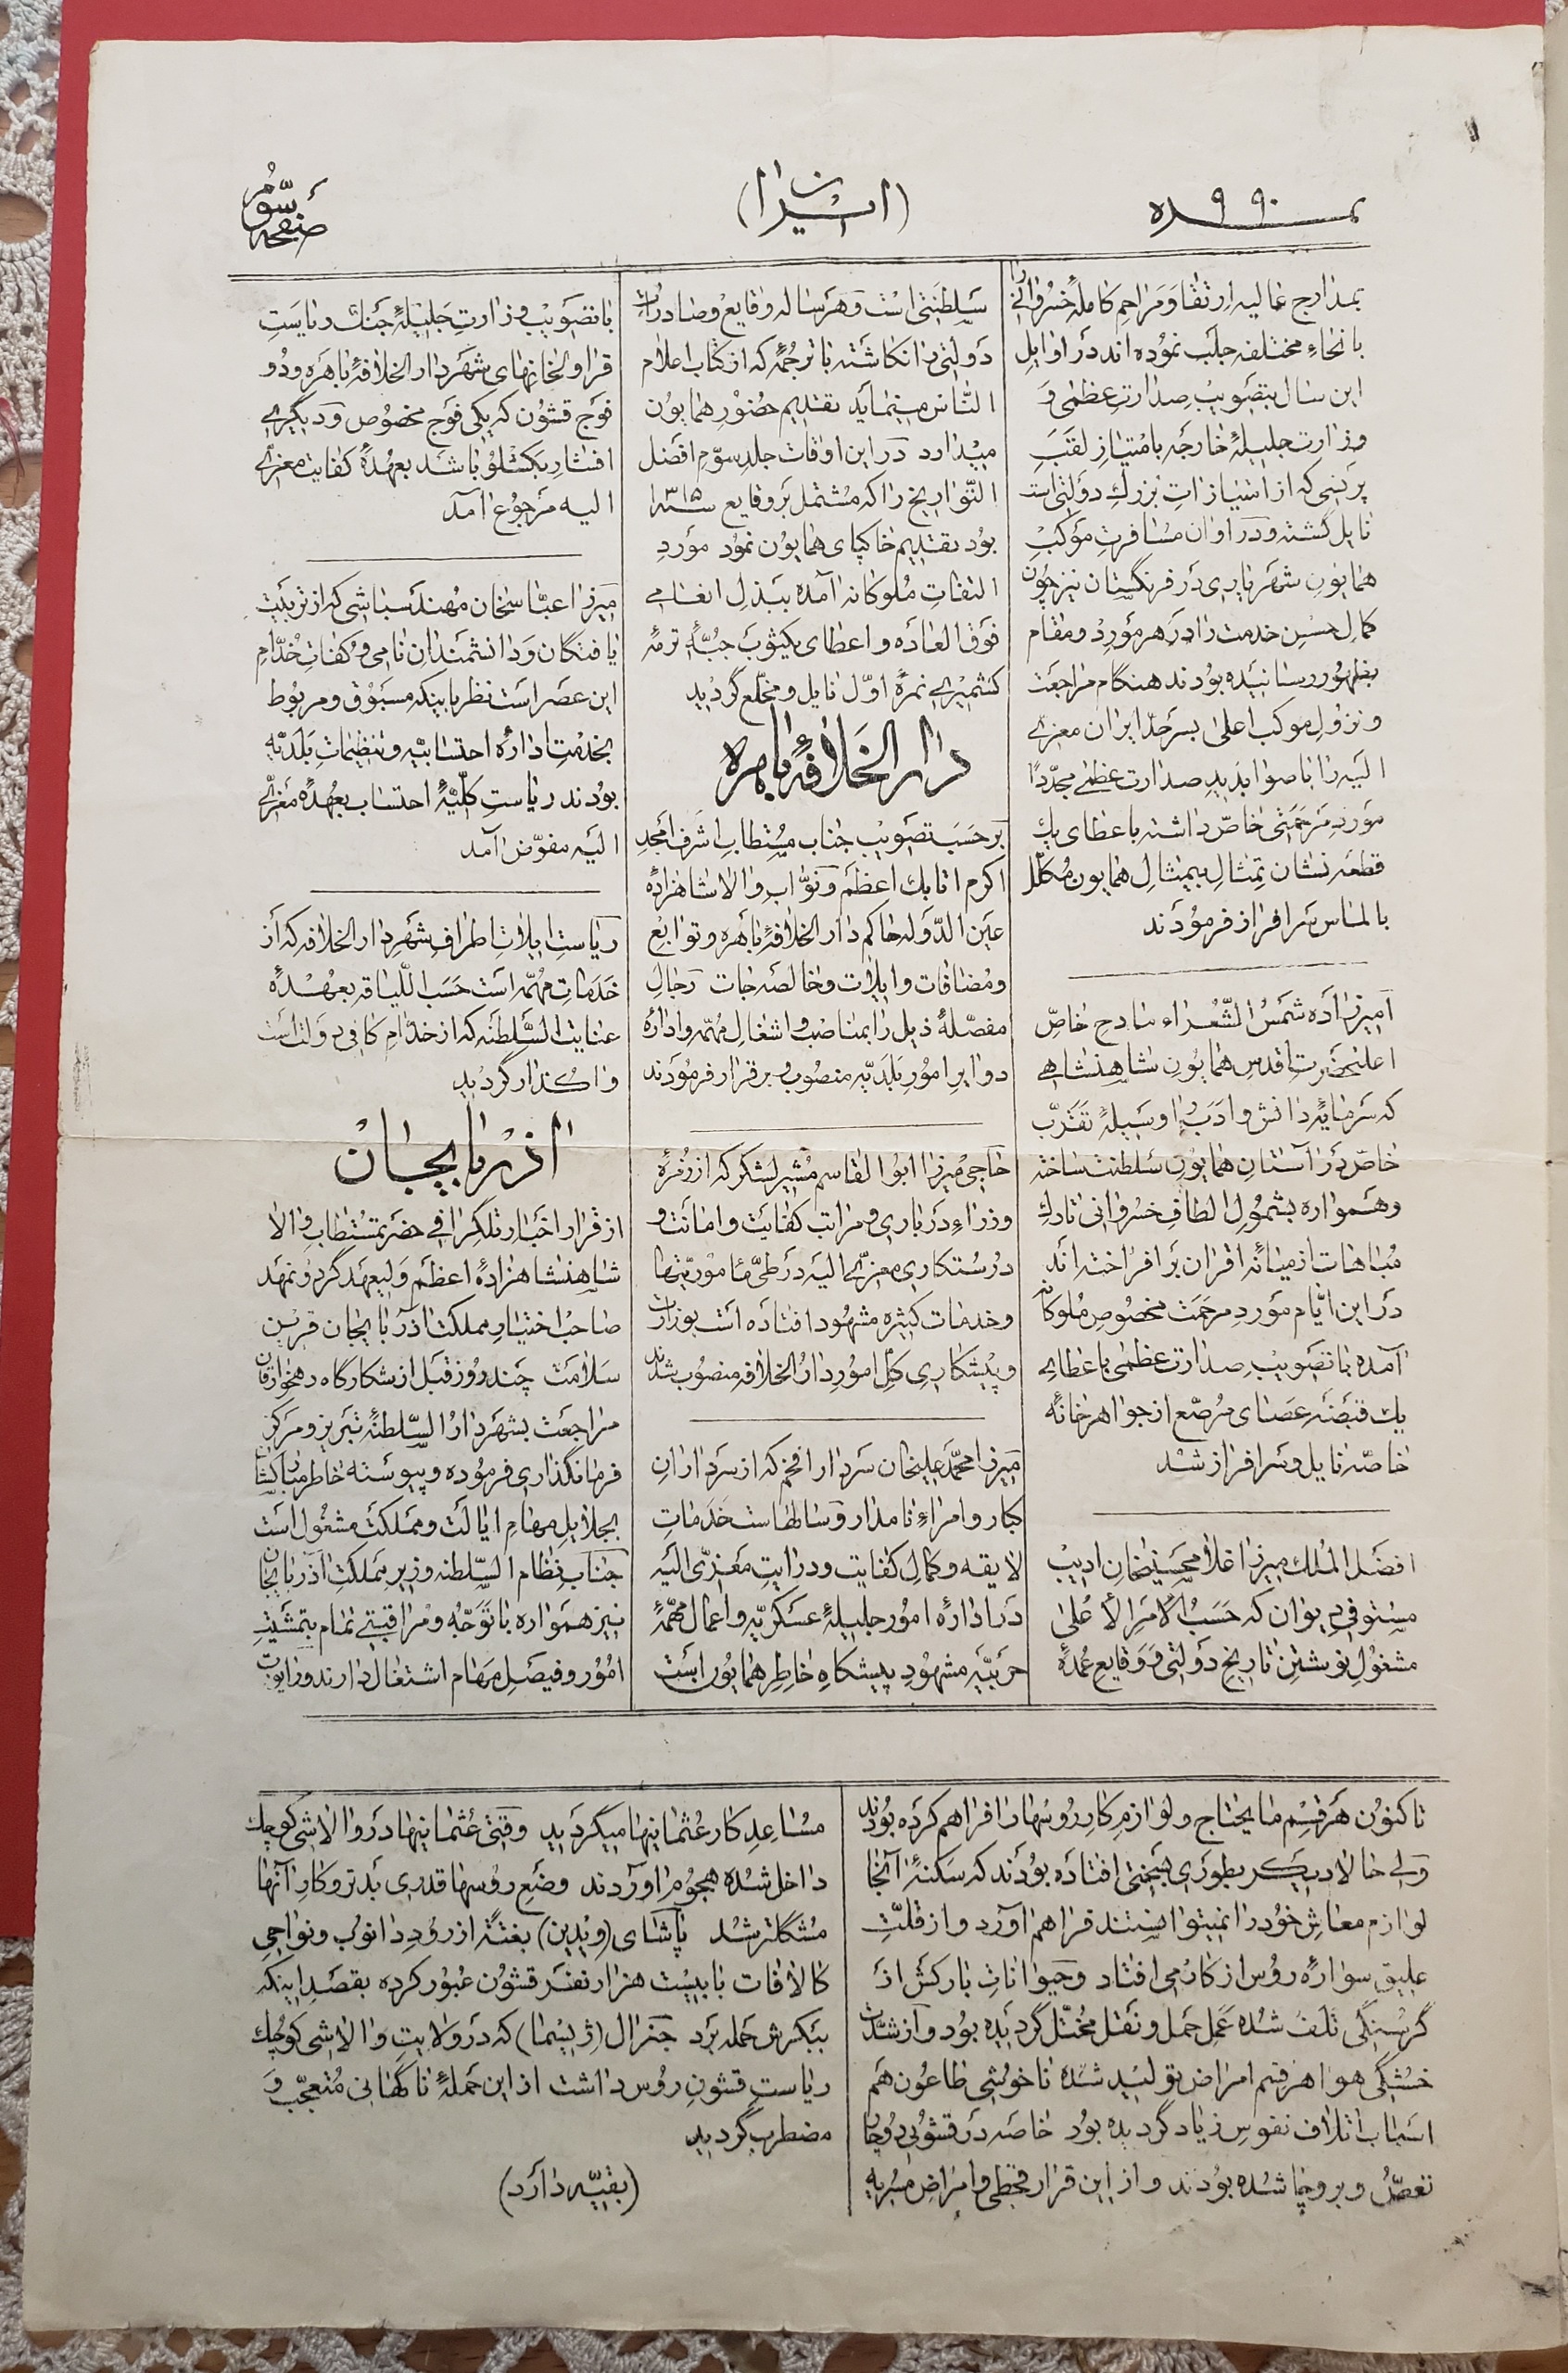 نمره ۹۹۰
(ایران)
صفحه سوّم
بمدارج عالیه ارتقا و مراحم کاملهٔ خسروانی را
بانحاءِ مختلفه جلب نموده‌اند در اوایل
این سال بتصویبِ صدارتِ عظمیٰ وَ
وزارتِ جلیلهٔ خارجه بامتیازِ لقبَ
پرنسی که از امتیازاتِ بزرگِ دولتی است
نایل گشته و در اوان مسافرتِ موکبْ
همایونِ شهریاری در فرنگستان نیز چون
کمالِ حسنِ خدمت را در هر مورد و مقام
بظهور رسانیده بودند هنگام مراجعت
و نزولِ موکب اعلی بسرحدّ ایران معزّی
الیه را باصوابدیدِ صدارت عظمیٰ مجدّداً
موردِ مرحمتی خاصّ داشته باعطای یک
قطعه نشان تمثالِ بیمثالِ همایون مکلّل
بالماس سرافراز فرمودند
امیرزاده شمس الشّعراء مادحِ خاصّ
اعلیحضرت اقدس همایونِ شاهنشاهی
که سرمایهٔ دانش و ادب را وسیلهٔ تقرّب
خاصّ در آستانِ همایونِ سلطنت ساخته
و همواره بشمولِ الطافِ خسروانی تارکِ
مباهات از میانهٔ اقران برافراخته‌اند
در این ایّام موردِ مرحمت مخصوصِ ملوکانه
آمده باتصویبِ صدارت عظمیٰ باعطای
یک قبضه عصای مرصّع از جواهرخانهٔ
خاصّه نایل و سرافراز شد
افضل الملک میرزا غلامحسینخان ادیب
مستوفی دیوان که حسب الامر الاعلی
مشغول نوشتن تاریخ دولتی و وقایع عمدهٔ
سلطنتی است و هر ساله وقایع و صادرات
دولتی را نگاشته باترجمه که از کتاب اعلام
النّاس مینماید تقدیم حضورِ همایون
میدارد در این اوقات جلدِ سوّمِ افضل
التّواریخ را که مشتمل بر وقایع سنه ۱۳۱۵
بود تقدیم خاکپای همایون نمود موردِ
التفاتِ ملوکانه آمده ببذلِ انعامی
فوق العاده و اعطای یکثوب جبّهٔ ترمه
کشمیری نمرهٔ اوّل نایل و مخلّع گردید
دار الخلافهٔ باهره
بر حسب تصویب جناب مستطاب اشرف امجدِ
اکرم اتابک اعظم و نوّاب والا شاهزاده
عین الدّوله حاکم دار الخلافهٔ باهره و توابع
و مضافات و ایلات و خالصه‌جات رجالِ
مفصّلهٔ ذیل را بمناصب و اشغالِ مهمّه و ادارهٔ
دوایرِ امورِ بلدیّه منصوب و برقرار فرمودند
حاجی میرزا ابوالقاسم مشیر لشکر که از زمرهٔ
وزراءِ درباری و مراتب کفایت و امانت و
درستکاری معزّی الیه در طیّ مأموریّتها
و خدمات کثیره مشهود افتاده است بوزارت
و پیشکاری کلِّ امورِ دارُ الخلافه منصوب شدند
میرزا محمّد علیخان سردار افخم که از سردارانِ
کبار و امراءِ نامدار و سالهاست خدماتِ
لایقه و کمالِ کفایت و درایتِ معزّی الیه
در ادارهٔ امور جلیلهٔ عسکریّه و اعمالِ مهمّهٔ
حربیّه مشهودِ پیشگاهِ خاطرِ همایون است
باتصویب وزارتِ جلیلهٔ جنگ ریاستِ
قراولخانهای شهر دار الخلافهٔ باهره و دو
فوج قشون که یکی فوج مخصوص و دیگری
افشارِ بکشلو باشد بعهدهٔ کفایت معزّی
الیه مرجوع آمد
میرزا عبّاسخان مهندسباشی که از تربیت
یافتگان و دانشمندانِ نامی و کفاتِ خدّامِ
این عصر است نظر باینکه مسبوق و مربوط
بخدمتِ ادارهٔ احتسابیّه و تنظیمات بلدیّه
بودند ریاست کلیّهٔ احتساب بعهدهٔ معزّی
الیه مفوّض آمد
ریاست ایلاتِ اطرافِ شهرِ دار الخلافه که از
خدماتِ مهمّه است حسب اللّیاقه بعهدهٔ
عنایت السّلطنه که از خدّامِ کافی دولت است
واگذار گردید
آذربایجان
از قرار اخبارِ تلگرافی حضرت مستطاب والا
شاهنشاهزادهٔ اعظم ولیعهد گردون مهد
صاحب اختیارِ مملکت آذربایجان قرین
سلامت چند روز قبل از شکارگاه دهخوارقان
مراجعت بشهر دارُ السّلطنهٔ تبریز و مرکز
فرمانگذاری فرموده و پیوسته خاطر مبارکشان
بجلایلِ مهامِ ایالت و مملکت مشغول است
جناب نظام السّلطنه وزیر مملکتِ آذربایجان
نیز همواره باتوجّه و مراقبتی تمام بتمشیتِ
امور و فیصلِ مهام اشتغال دارند
تاکنون هر قسم مایحتاج و لوازمِ کارِ روسها را فراهم کرده بودند
ولی حالا دیگر بطوری بسختی افتاده بودند که سکنهٔ آنجا
لوازم معاشِ خود را نمیتوانستند فراهم آورد و از قلّتِ
علیق سوارهٔ روس از کار می افتاد و حیوانات بارکش از
گرسنگی تلف شده عمل حمل و نقل مختلّ گردیده بود و از شدّت
خشکی هوا هر قسم امراض تولید شده ناخوشی طاعون هم
اسباب اتلاف نفوسِ زیاد گردیده بود خاصه در قشونی که دوچار
و از این قرار قحطی و امراض مسریه
مساعدِ کار عثمانیها میگردید وقتی عثمانیها در والاشی کوچک
داخل شده هجوم آوردند وضع روسها قدری بدتر و کارِ آنها
مشکلتر شد پاشای (ویدین) بغتةً از رود دانوب و نواحی
کالافات با بیست هزار نفر قشون عبور کرده بقصد اینکه
ببکرش حمله برد جنرال (ژیسما) که در ولایت والاشی کوچک
ریاست قشونِ روس داشت از این حملهٔ ناگهانی متعجّب وَ
مضطرب گردید
(بقیّه دارد)